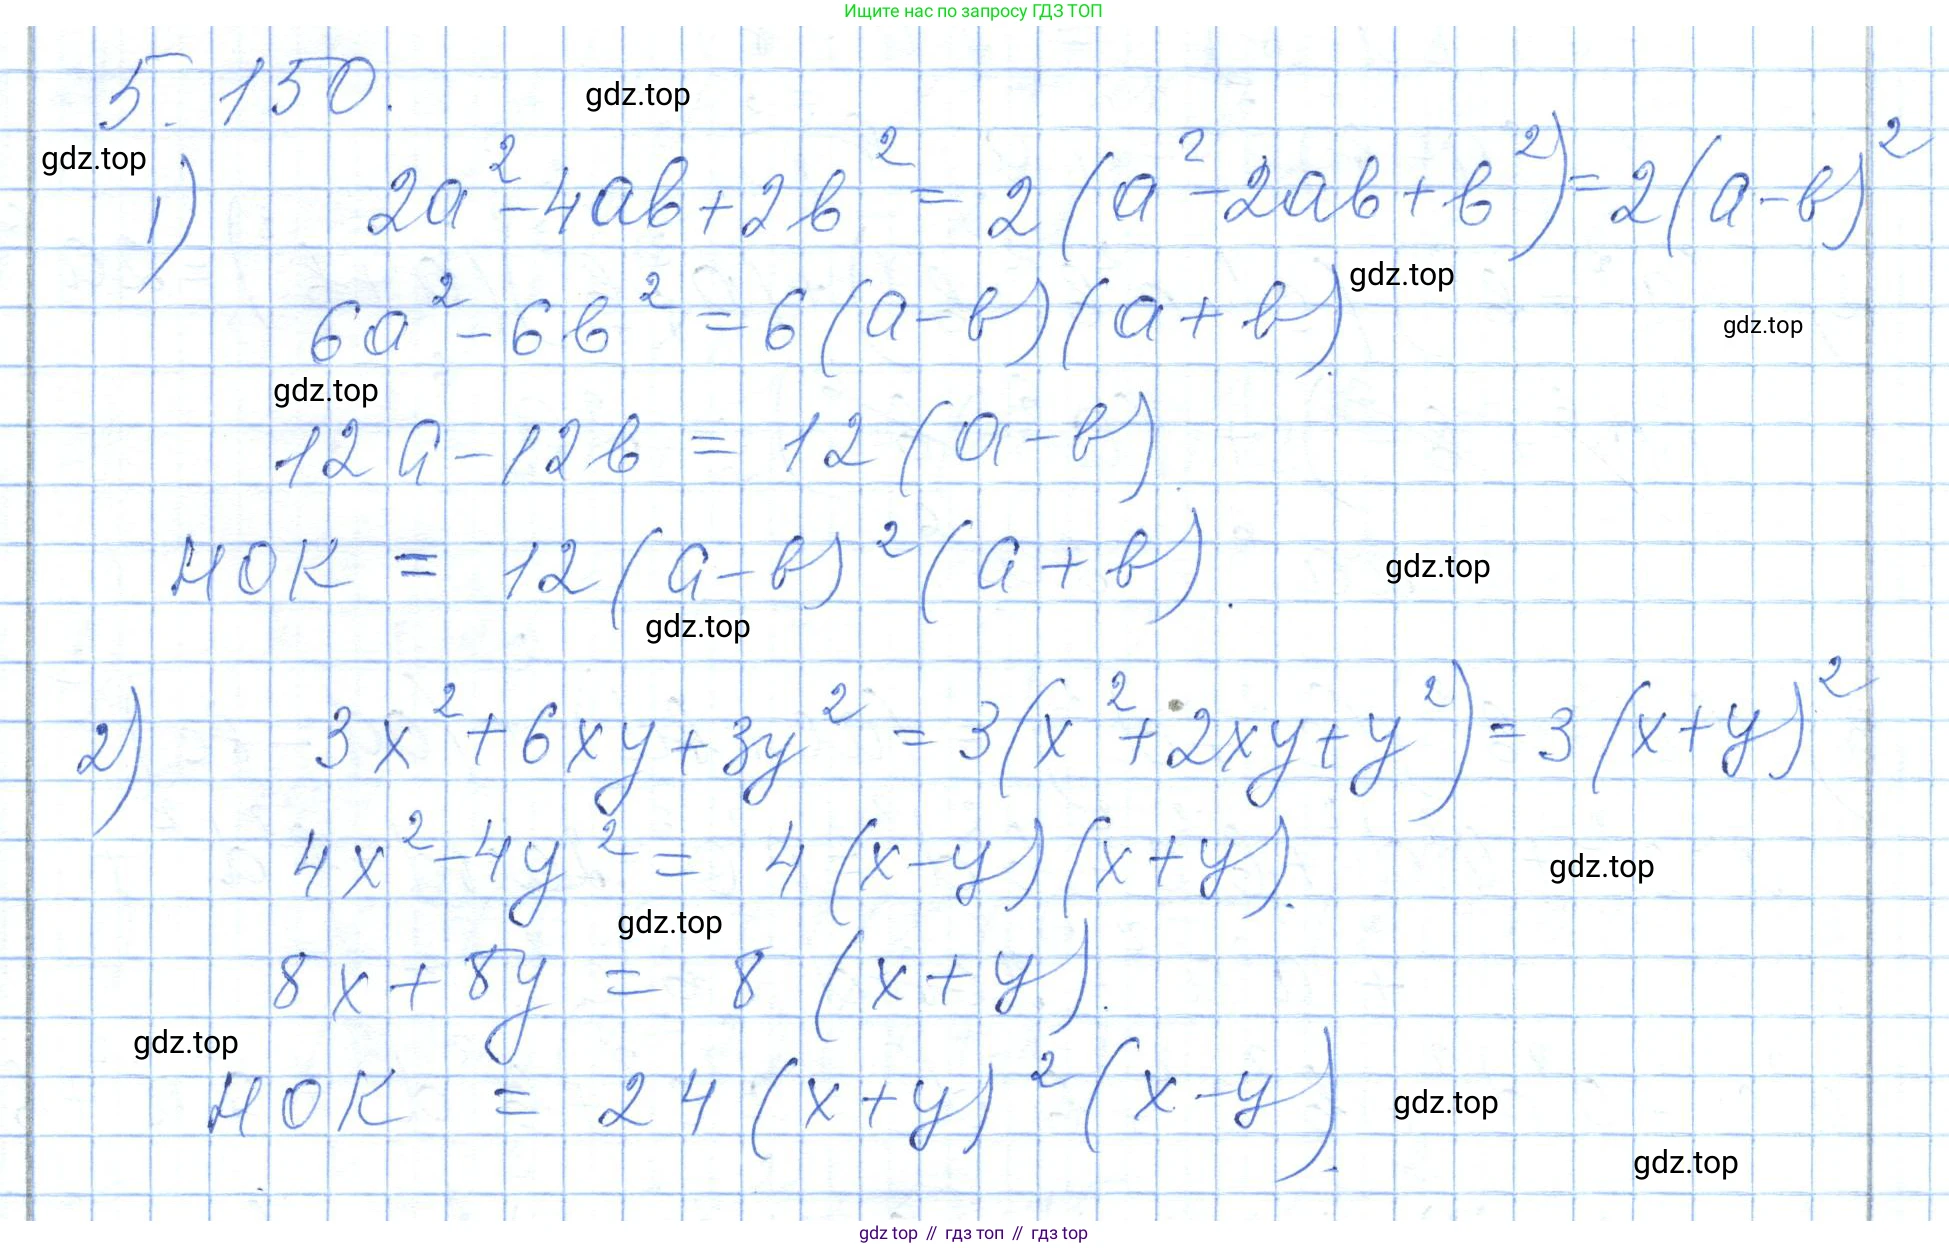 Ищите нас по запросу ГДЗ ТОП
5.150.
gdz.top
gdz.top
1) 2a² - 4ab + 2b² = 2(a² - 2ab + b²) = 2(a - b)²
gdz.top
6a² - 6b² = 6(a - b)(a + b).
gdz.top
gdz.top
12a - 12b = 12(a - b).
НОК = 12(a - b)²(a + b).
gdz.top
gdz.top
2) 3x² + 6xy + 3y² = 3(x² + 2xy + y²) = 3(x + y)²
4x² - 4y² = 4(x - y)(x + y).
gdz.top
gdz.top
8x + 8y = 8(x + y).
gdz.top
НОК = 24(x + y)²(x - y).
gdz.top
gdz.top
gdz top // гдз топ // гдз top